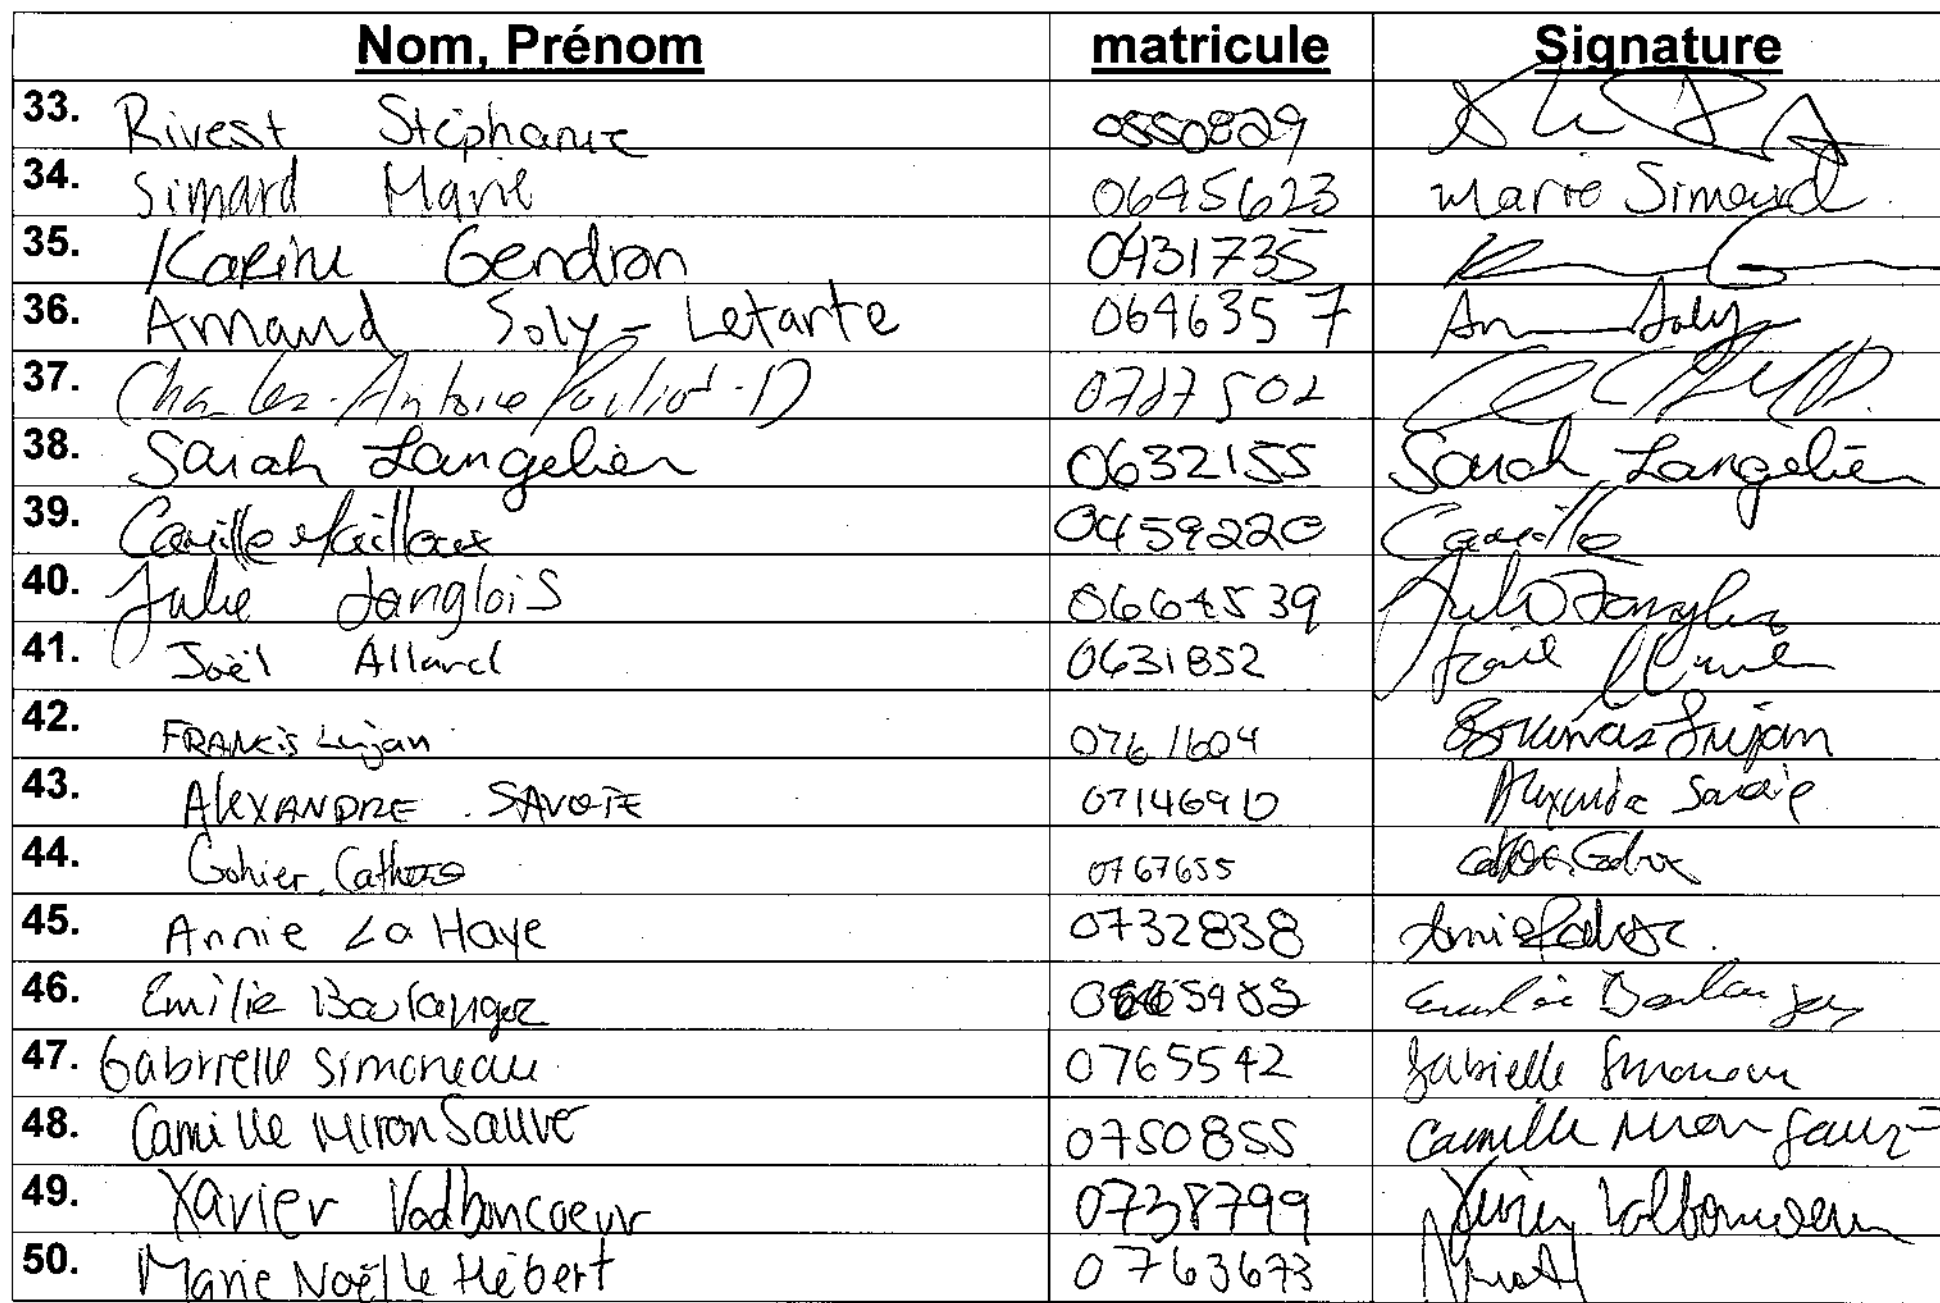 Nom, Prénom matricule Signature
33. Rivest Stéphanie 0550829
34. Simard Marie 0645623 Marie Simard
35. Karine Gendron 0431735
36. Arnaud Soly-Letarte 0646357
37. Charles-Antoine Pouliot-D
38. Sarah Langelier 0632155 Sarah Langelier
39. Camille Mailloux 0459220 Camille
40. Julie Langlois 0664539 Julie Langlois
41. Joël Allard 0631852
42. FRANCIS Lujan 0761604 Lujan
43. AlEXANDRE SAVOIE 0714691D Alexandre Savoie
44. Gohier, 0767655
45. Annie La Haye 0732838
46. Emilie Boulanger Emilie Boulanger
47. Gabrielle Simoneau 0765542 Gabrielle Simoneau
48. Camille Miron Sauvé 0750855 Camille Miron Sauvé
49. Xavier Vadboncoeur 0738799 Xavier Vadboncoeur
50. Marie Noëlle Hébert 0763673